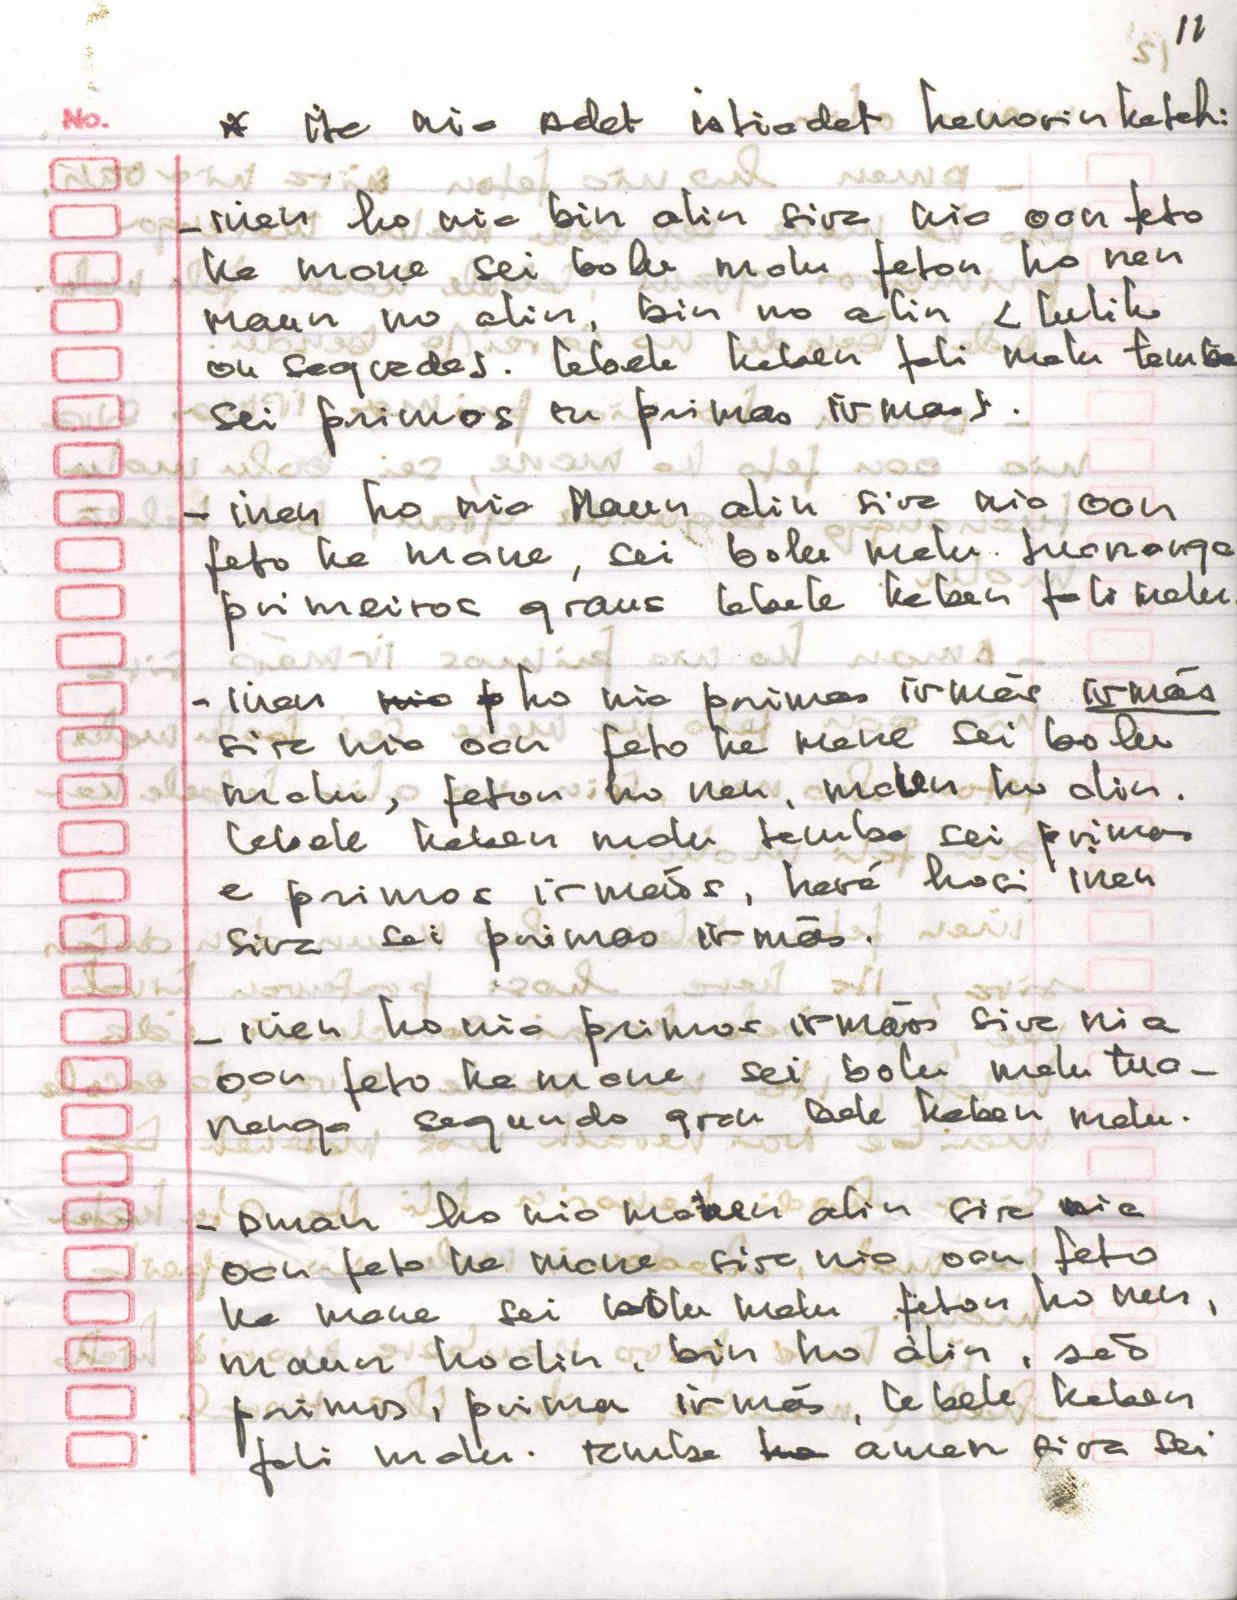 11
No.
* ita nia adet istiadet hemorin katak:
- inan ho nia bin alin sira nia oan feto
ka mane sei bolu malu feton ho nen
maun no alin, bin no alin
ou sagrades. labele kaben fali malu tamba
sei primos ou primas irmas.
- inan ho nia Maun alin sira nia oan
feto ka mane, sei bolu malu. tuananga
primeiros graus labele kaben fali malu.
- inan ho nia primas irmás irmás
sira nia oan feto ka mane sei bolu
malu, feton ho nen, maun ho alin.
labele kaben malu tamba sei primas
e primos irmaõs, hasé hosi inan
sira sei primas irmãs.
- inan ho nia primos irmãos sira nia
oan feto ka mane sei bolu malu tua-
nanga segundo grau bele kaben malu.
- aman ho nia maun alin sira nia
oan feto ka mane sira nia oan feto
ka mane sei bolu malu feton ho nen,
maun ho alin, bin ho alin, saõ
primos, prima irmás, labele kaben
fali malu. tamba aman sira sei